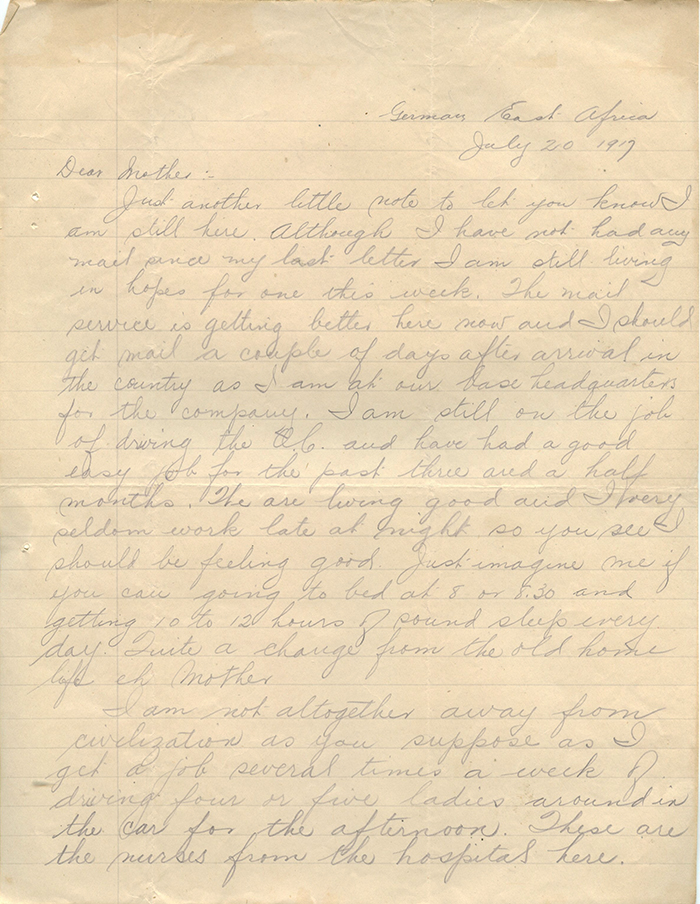 German East Africa
July 20 1917
Dear Mother :-
Just another little note to let you know I
am still here. Although I have not had any
mail since my last letter I am still living
in hopes for one this week. The mail
service is getting better here now and I should
get mail a couple of days after arrival in
the country as I am at our base headquarters
for the company. I am still on the job
of driving the O.C. and have had a good
easy job for the past three and a half
months. The are living good and I very
seldom work late at night so you see I
should be feeling good. Just imagine me if
you can going to bed at 8 or 8.30 and
getting 10 to 12 hours of sound sleep every
day. Quite a change from the old home
life eh Mother
I am not altogether away from
civilization as you suppose as I
get a job several times a week of
driving four or five ladies around in
the car for the afternoon. These are
the nurses from the hospital here.